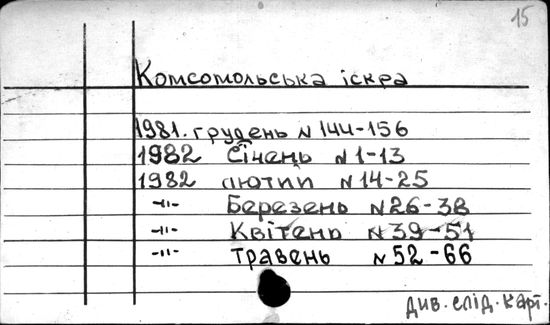 15
Комсомольська іскра
1981. грудень N 144-156
1982 Січень N 1-13
1982 лютий N 14-25
-"- Березень N 26-38
-"- Квітень N 39-51
-"- травень N 52-66
див. слід. карт.